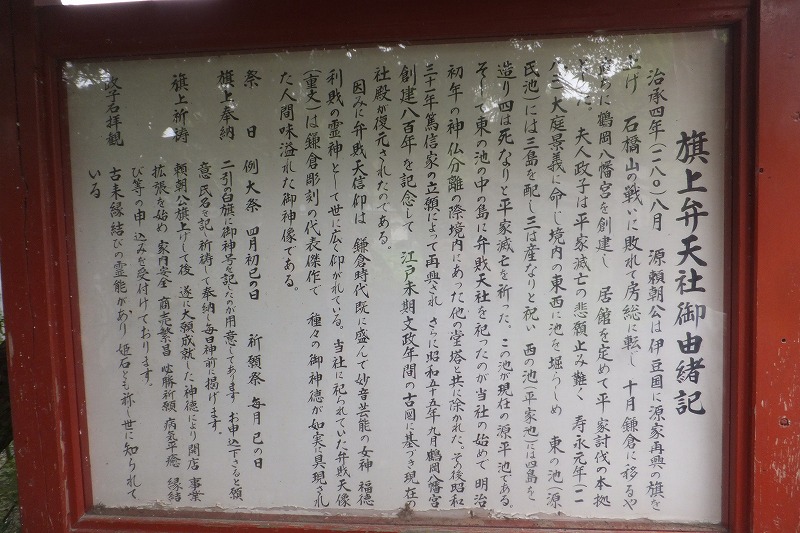 旗上弁天社御由緒記
治承四年(一一八〇)八月 源頼朝公は伊豆国に源家再興の旗を
上げ 石橋山の戦いに敗れて房総に転じ 十月鎌倉に移るや
直ちに鶴岡八幡宮を創建し 居館を定めて平家討伐の本拠
とした。夫人政子は平家滅亡の悲願止み難く 寿永元年(一一
八二)大庭景義に命じ境内の東西に池を掘らしめ 東の池(源
氏池)には三島を配し三は産なりと祝い 西の池(平家池)には四島を
造り四は死なりと平家滅亡を祈った。この池が現在の源平池である。
そして東の池の中の島に弁財天社を祀ったのが当社の始めで 明治
初年の神仏分離の際境内にあった他の堂塔と共に除かれた。その後昭和
三十一年篤信家の立願によって再興され さらに昭和五十五年九月鶴岡八幡宮
創建八百年を記念して 江戸末期文政年間の古図に基づき現在の
社殿が復元されたのである。
因みに弁財天信仰は 鎌倉時代既に盛んで妙音芸能の女神 福徳
利財の霊神として世に広く仰がれている。当社に祀られていた弁財天像
(重文)は鎌倉彫刻の代表傑作で 種々の御神徳が如実に具現され
た人間味溢れた御神像である。
祭日 例大祭 四月初巳の日 祈願祭 毎月巳の日
旗上奉納 二引の白旗に御神号を記したのが用意してあります お申込下さると願
意、氏名を記し祈祷して奉納、毎日神前に掲げます。
旗上祈祷 頼朝公旗上げして後 遂に大願成就した神徳により開店 事業
拡張を始め 家内安全 商売繁昌 必勝祈願 病気平癒 縁結
び等の申込みを受付けております。
政子石拝観 古来縁結びの霊能があり 姫石とも称し世に知られて
いる